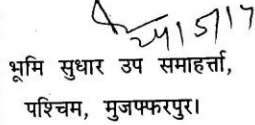 24/5/17
भूमि सुधार उप समाहर्त्ता,
पश्चिम, मुजफ्फरपुर।